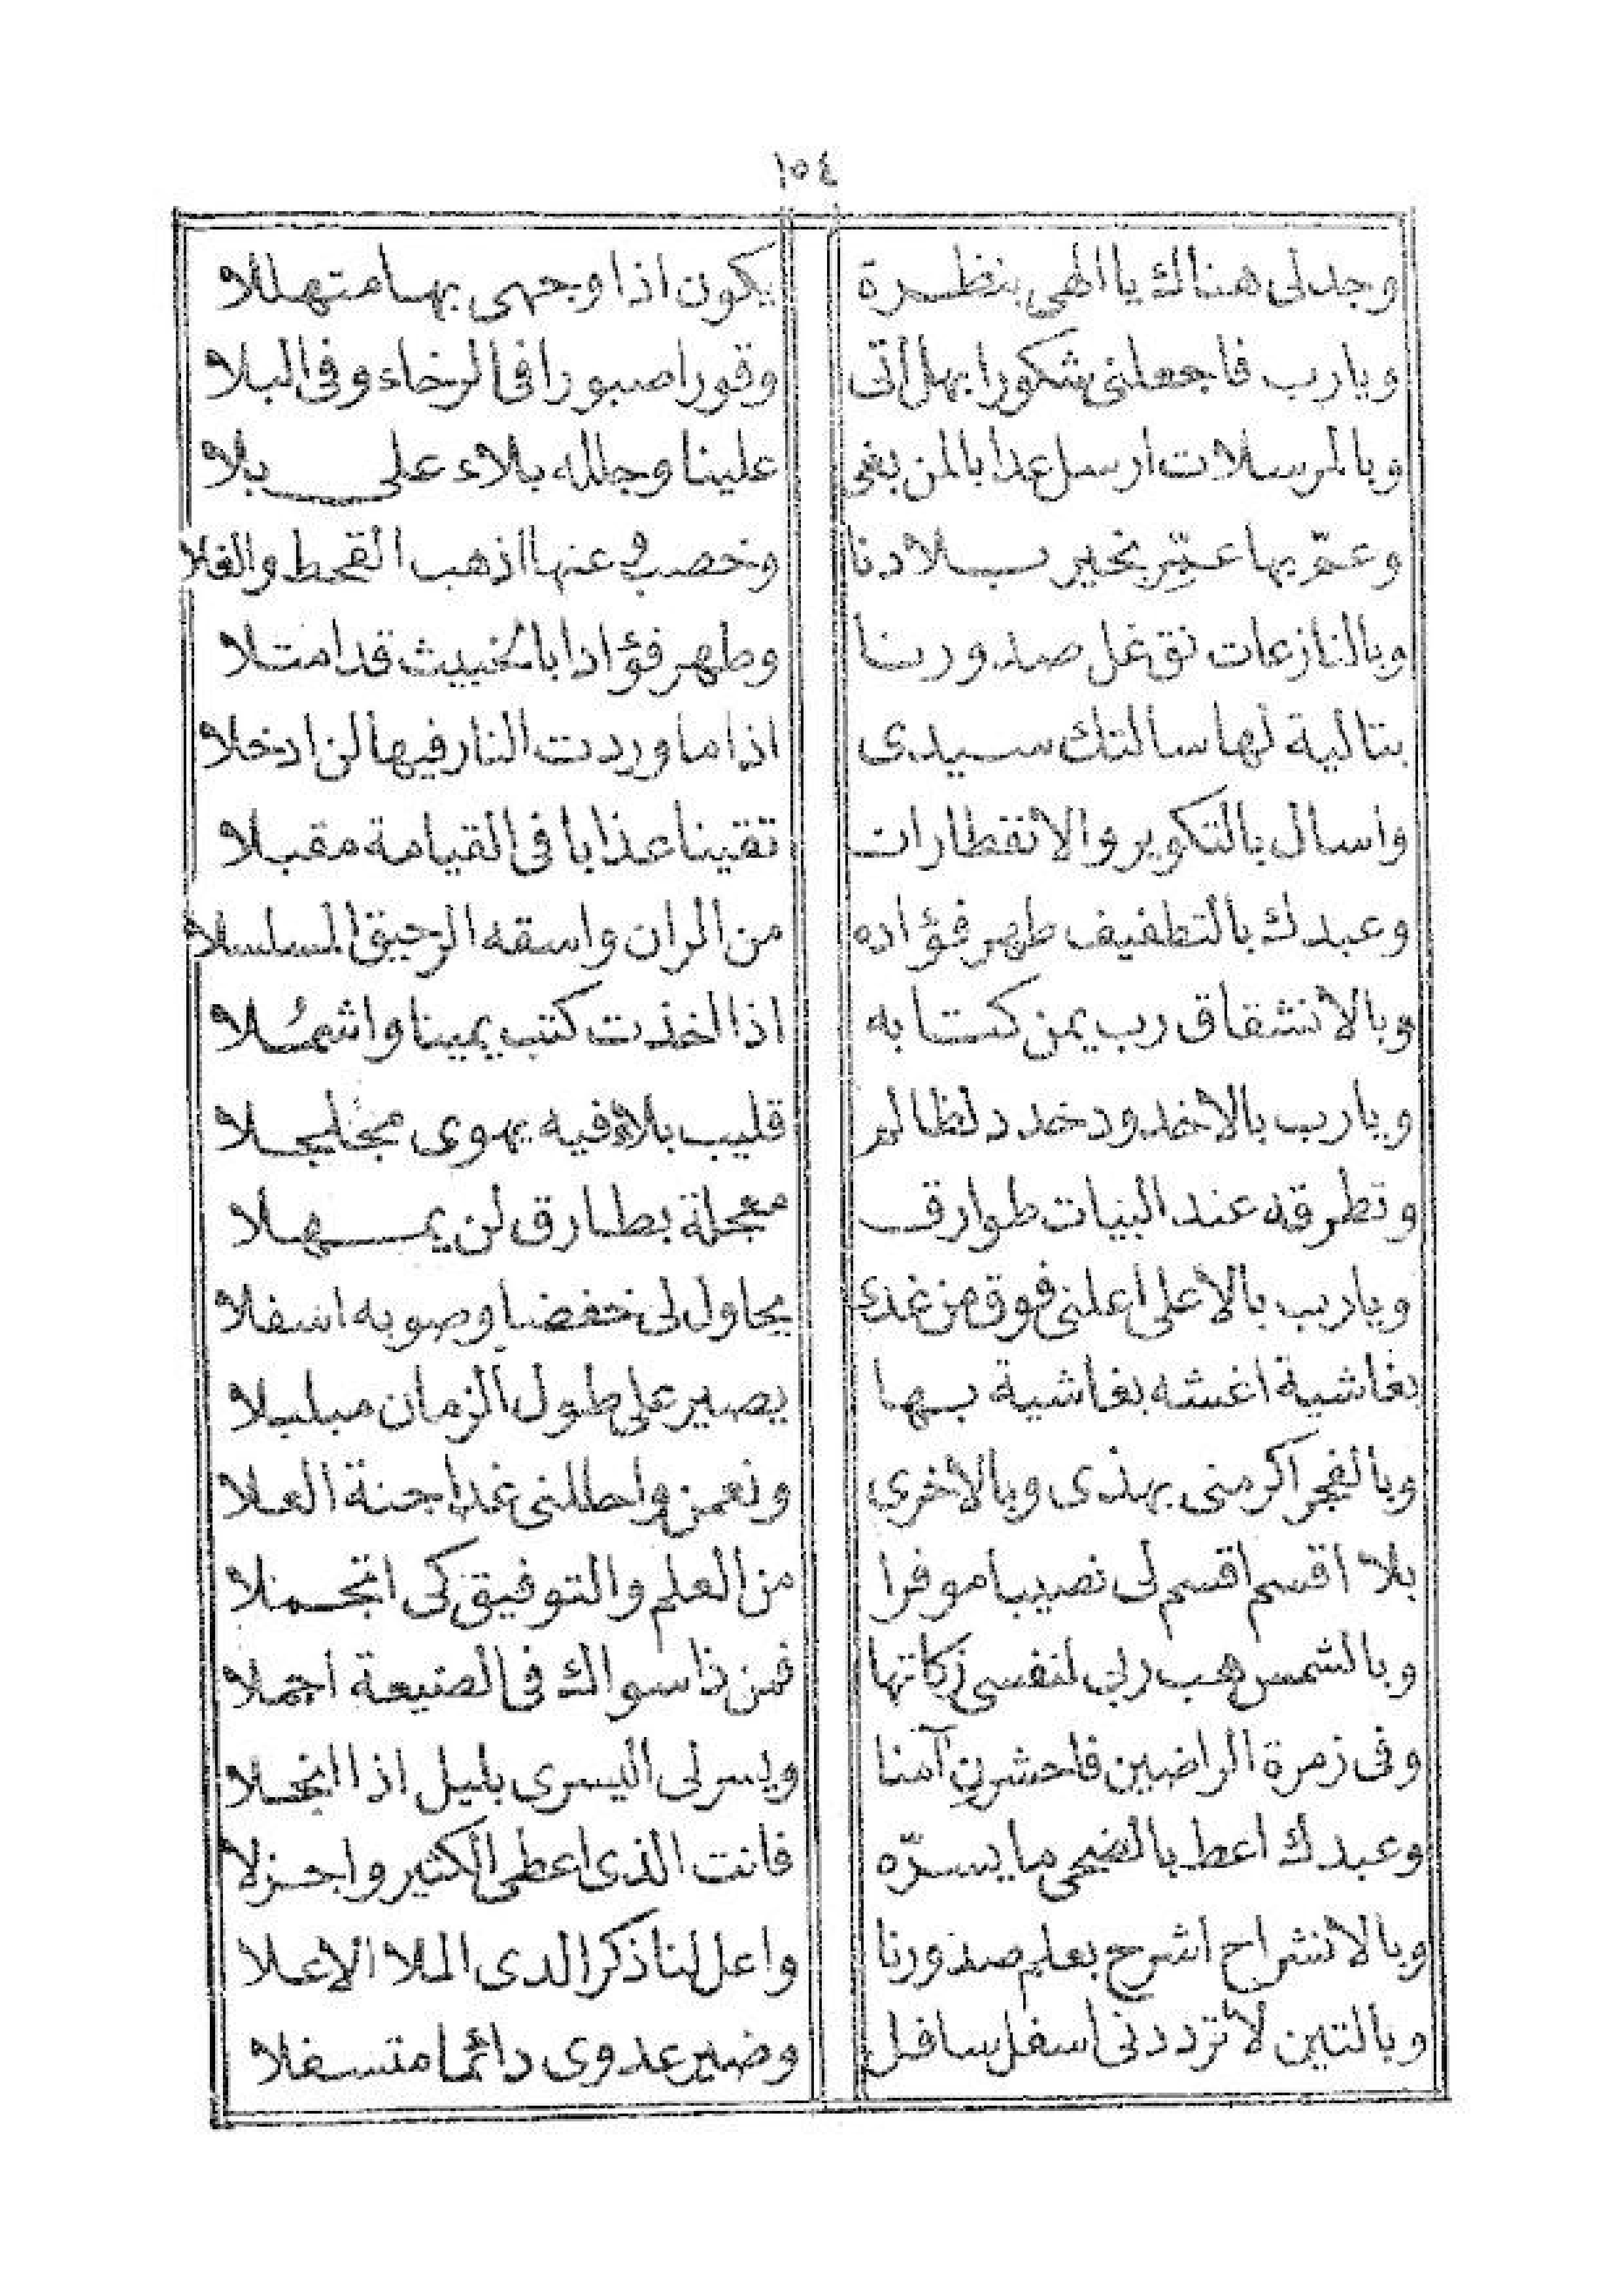 ١٥٤
وجدلى هناك يا الهى بنظرة يكون اذا وجهى بها متهللا
ويارب فاجعلنى شكورا بهل اتى وقورا صبورا فى الرخاء وفى البلا
وبالمرسلات ارسل عذابا لمن بغى علينا وجلله بلاء على بلا
وعمّ بها عمّر بخير بلادنا وخصب وعنها اذهب القحط والغلا
وبالنازعات نق غل صدورنا وطهر فؤادا بالخبيث قد امتلا
بتالية لها سالتك سيدى اذا ما وردت النار فيها لن ادخلا
واسال بالتكوير والانفطارات تقينا عذابا فى القيامة مقبلا
وعبدك بالتطفيف طهر فؤاده من الران واسقه الرحيق المسلسلا
وبالانشقاق رب يمن كتابه اذا اخذت كتب يمينا واشمُلا
ويارب بالاخدود خدد لظالم قليب بلاء فيه يهوى مجلجلا
وتطرقه عند البيات طوارق معجلة بطارق لن يمهلا
ويارب بالاعلى اعلنى فوق من غدا يحاول لى خفضا وصوبه اسفلا
بغاشية اغشه بغاشية بها يصير على طول الزمان مبلبلا
وبالفجر اكرمنى بهذى وبالاخرى ونعمن واحللنى غدا جنة العلا
بلا اقسم اقسم لى نصيبا موفرا من العلم والتوفيق كى اتجملا
وبالشمس هب ربى لنفسى زكاتها فمن ذا سواك فى الصنيعة اجملا
وفى زمرة الراضين فاحشرنى آمنا ويسر لى اليسرى بليل اذا انجلا
وعبدك اعط بالضحى ما يسرّه فانت الذى اعطى الكثير واجزلا
وبالانشراح اشرح بعلم صدورنا واعل لنا ذكرا لدى الملا الاعلا
وبالتين لا تردنى اسفل سافل وصير عدوى دائما متسفلا